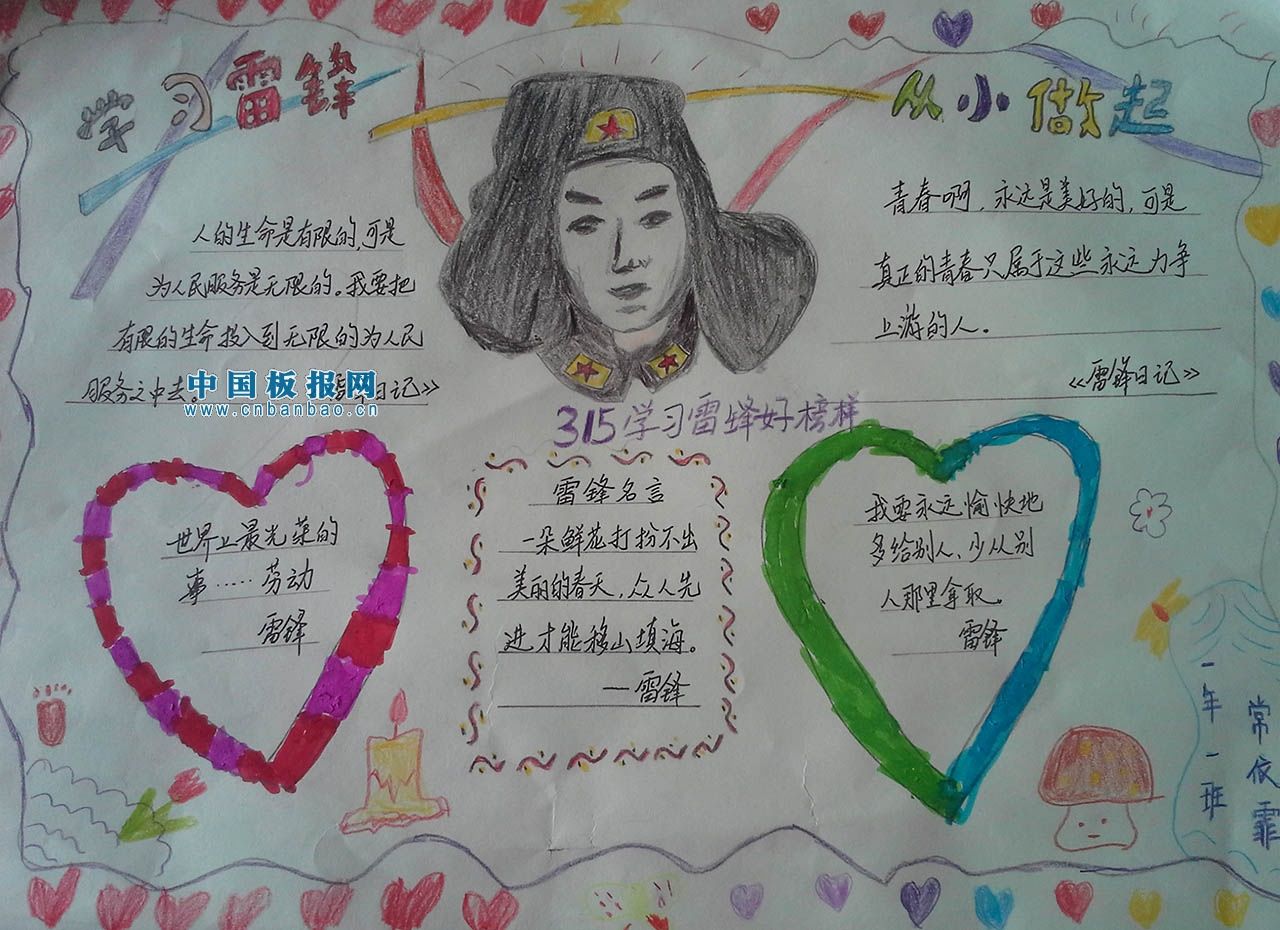 学习雷锋
从小做起
人的生命是有限的,可是
为人民服务是无限的。我要把
有限的生命投入到无限的为人民
服务之中去。
日记》
中国板报网
www.cnbanbao.cn
青春啊,永远是美好的,可是
真正的青春只属于这些永远力争
上游的人。
《雷锋日记》
315学习雷锋好榜样
世界上最光荣的
事……劳动
雷锋
雷锋名言
一朵鲜花打扮不出
美丽的春天,众人先
进才能移山填海。
—雷锋
我要永远愉快地
多给别人,少从别
人那里拿取。
雷锋
一年一班
常依霏